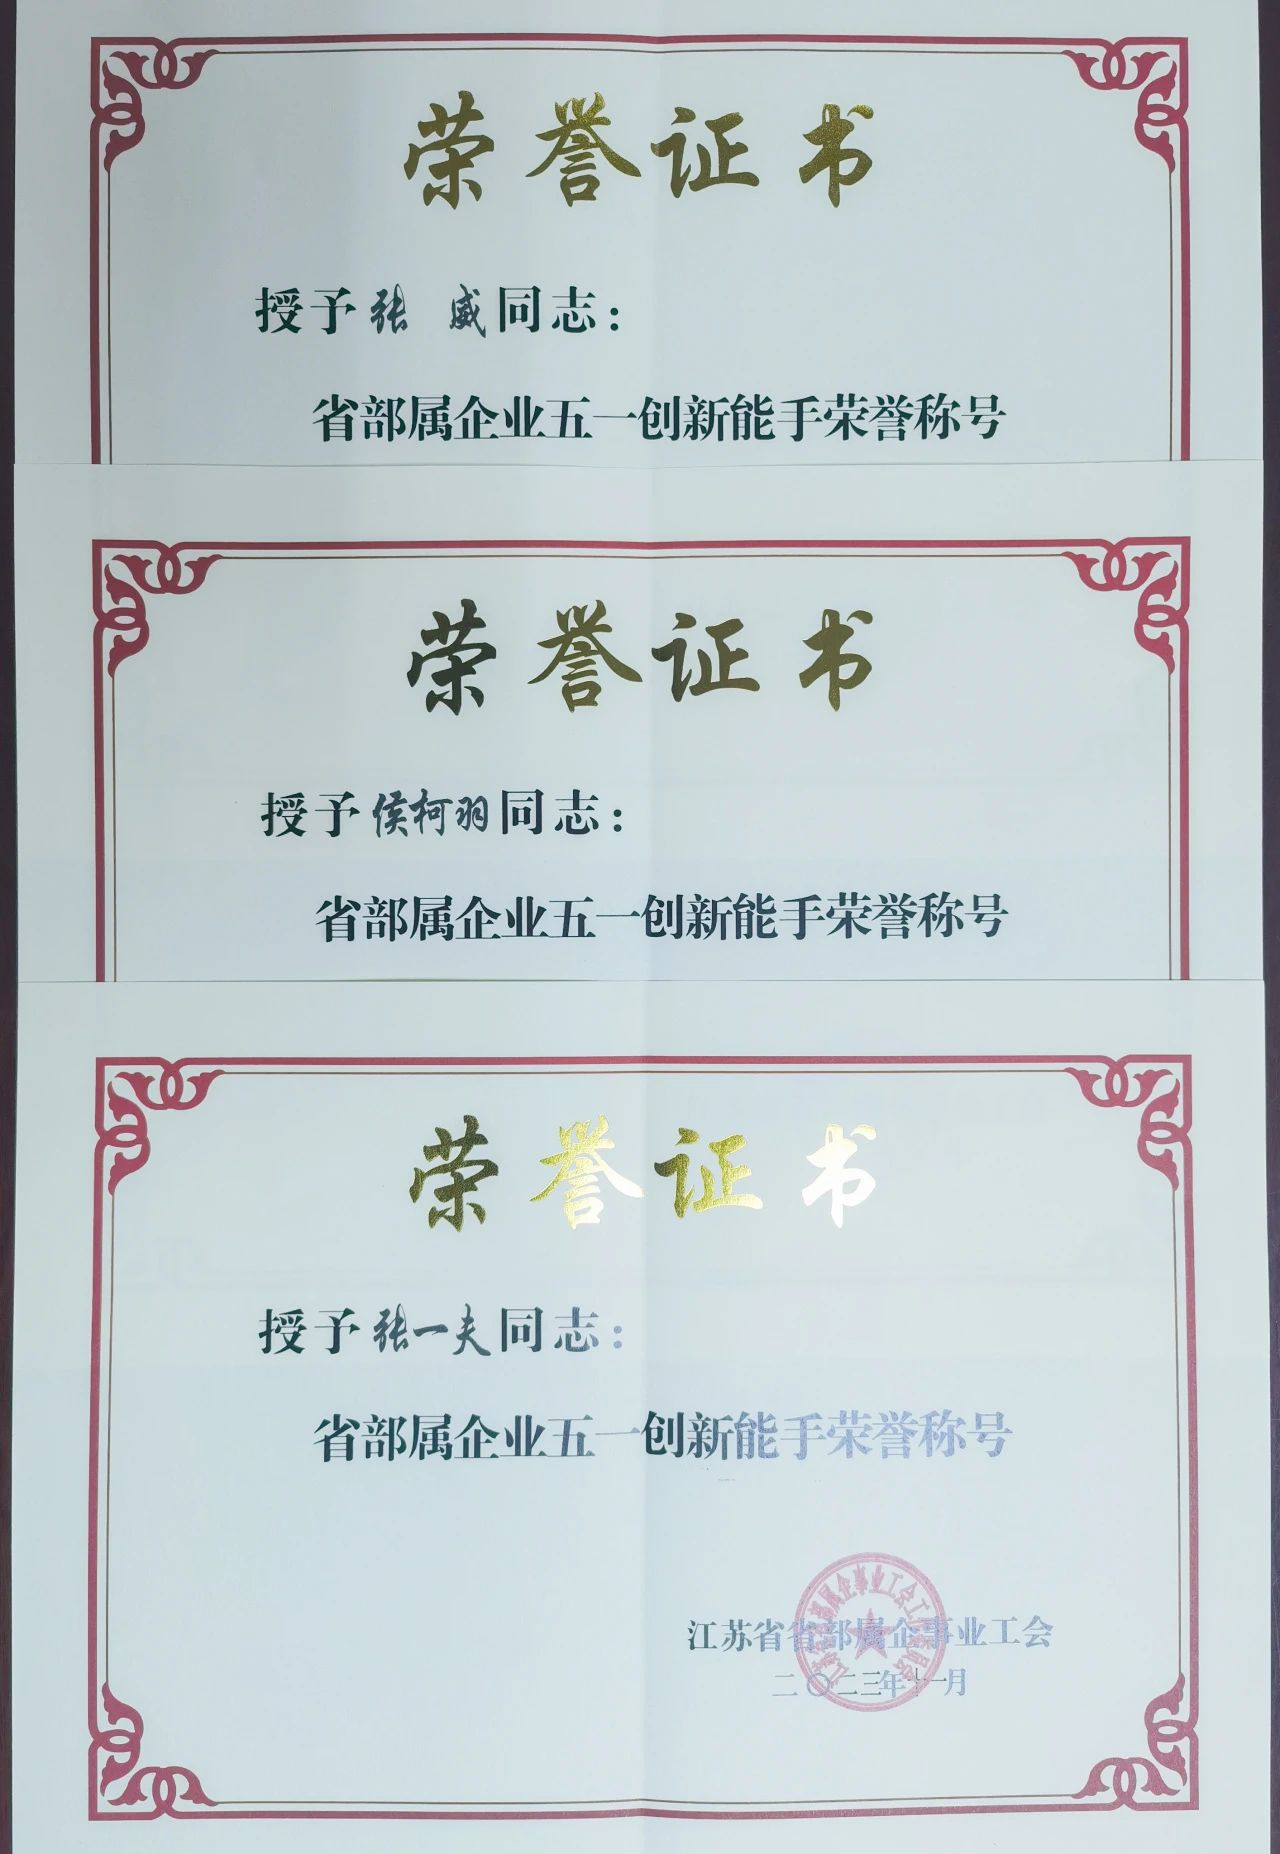 荣誉证书
授予张 威同志：
省部属企业五一创新能手荣誉称号
荣誉证书
授予侯柯羽同志：
省部属企业五一创新能手荣誉称号
荣誉证书
授予张一夫同志：
省部属企业五一创新能手荣誉称号
江苏省省部属企事业工会
二〇二三年十一月